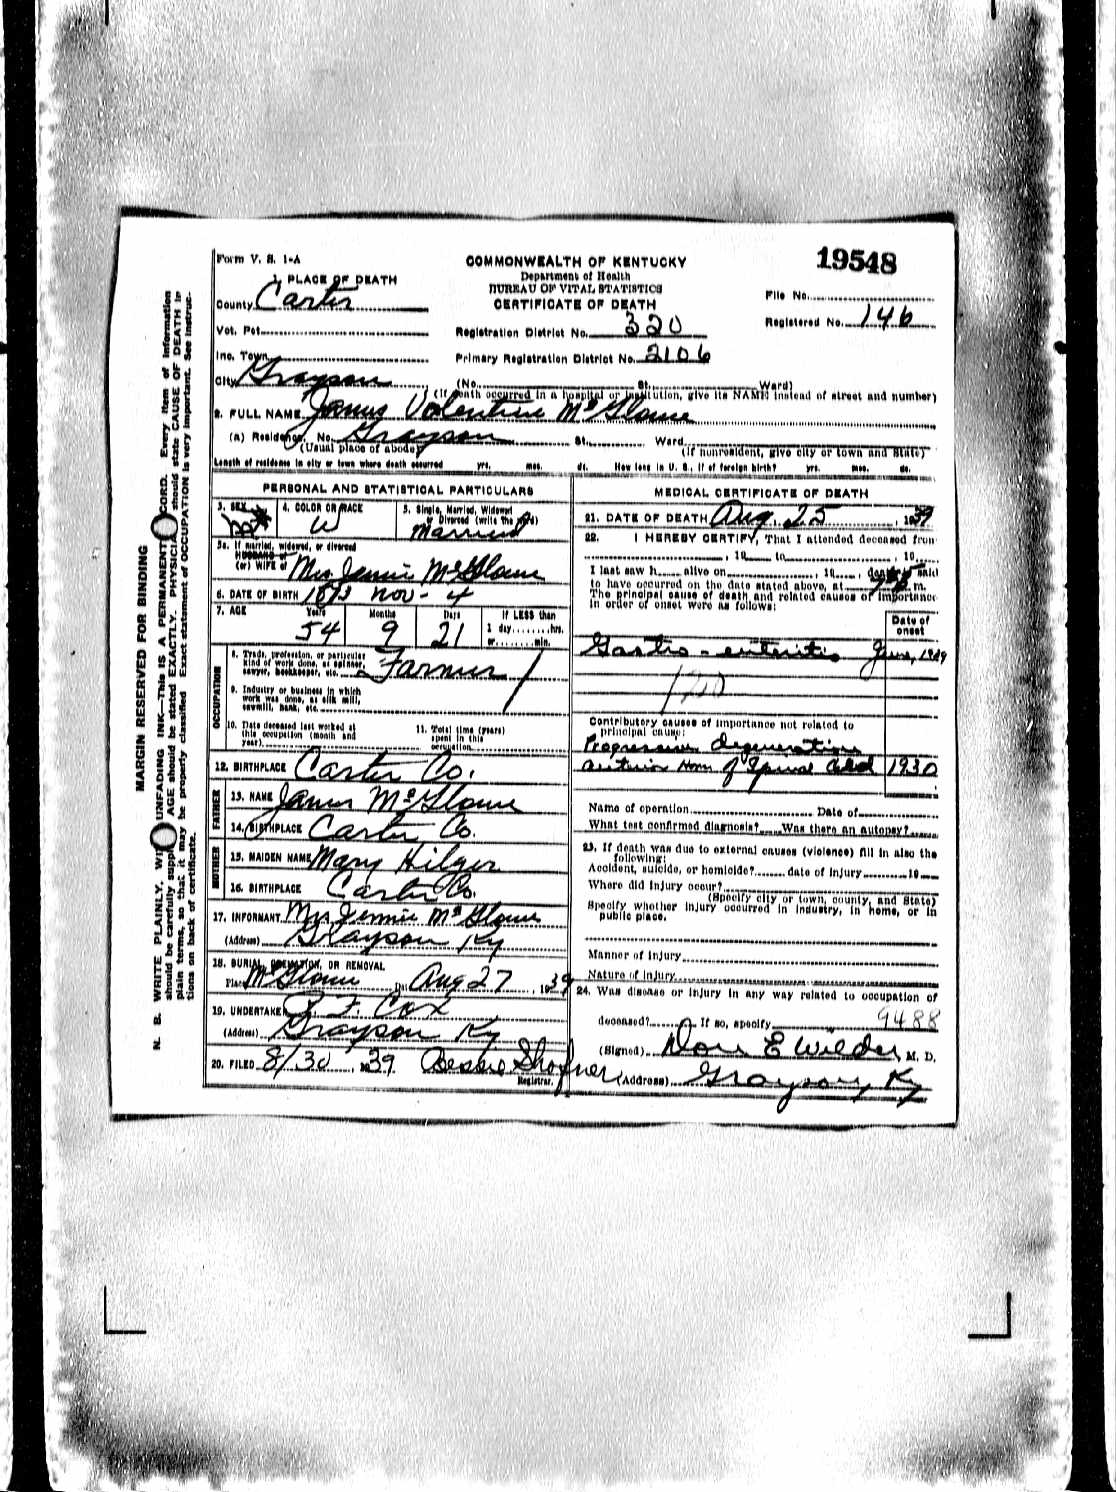 Form V. S. 1-A
COMMONWEALTH OF KENTUCKY
Department of Health
BUREAU OF VITAL STATISTICS
CERTIFICATE OF DEATH
19548
File No.
Registered No. 146
1. PLACE OF DEATH
County Carter
Vot. Pct.
Registration District No. 320
Inc. Town
Primary Registration District No. 2106
City Grayson (No. St. Ward)
(If death occurred in a hospital or institution, give its NAME instead of street and number)
2. FULL NAME James Valentine McGlone
(a) Residence. No. Grayson St. Ward
(Usual place of abode) (If nonresident, give city or town and State)
Length of residence in city or town where death occurred yrs. mos. ds. How long in U. S., if of foreign birth? yrs. mos. ds.
PERSONAL AND STATISTICAL PARTICULARS
3. SEX 4. COLOR OR RACE 5. Single, Married, Widowed
or Divorced (write the word)
M W Married
5a. If married, widowed, or divorced
HUSBAND of
(or) WIFE of Mrs Jennie McGlone
6. DATE OF BIRTH Nov - 4
7. AGE Years Months Days If LESS than
54 9 21 1 day, hrs.
or min.
OCCUPATION
8. Trade, profession, or particular
kind of work done, as spinner,
sawyer, bookkeeper, etc. Farmer
9. Industry or business in which
work was done, as silk mill,
sawmill, bank, etc.
10. Date deceased last worked at
this occupation (month and
year)
11. Total time (years)
spent in this
occupation
12. BIRTHPLACE Carter Co.
FATHER
13. NAME James McGlone
14. BIRTHPLACE Carter Co.
MOTHER
15. MAIDEN NAME Mary Hilger
16. BIRTHPLACE Carter Co.
17. INFORMANT Mrs Jennie McGlone
(Address) Grayson Ky
18. BURIAL, CREMATION, OR REMOVAL
Place McGlone Date Aug 27, 1939
19. UNDERTAKER F. Cox
(Address) Grayson Ky
20. FILED 8/30, 1939. Bessie Shofner
Registrar.
MEDICAL CERTIFICATE OF DEATH
21. DATE OF DEATH Aug. 25, 1939
22. I HEREBY CERTIFY, That I attended deceased from
, 19 to , 19
I last saw h alive on , 19 , death is said
to have occurred on the date stated above, at m.
The principal cause of death and related causes of importance
in order of onset were as follows:
Date of
onset
Gastro - enteritis June, 1939
120
Contributory causes of importance not related to
principal cause:
Progressive degeneration
anterior Horn of Spinal Cord 1930
Name of operation Date of
What test confirmed diagnosis? Was there an autopsy?
23. If death was due to external causes (violence) fill in also the
following:
Accident, suicide, or homicide? date of injury 19
Where did injury occur?
(Specify city or town, county, and State)
Specify whether injury occurred in industry, in home, or in
public place.
Manner of injury
Nature of injury
24. Was disease or injury in any way related to occupation of
deceased? If so, specify 9488
(Signed) Don E Wilder, M. D.
(Address) Grayson, Ky
MARGIN RESERVED FOR BINDING
N. B. WRITE PLAINLY, WITH UNFADING INK—THIS IS A PERMANENT RECORD. Every item of information
should be carefully supplied. AGE should be stated EXACTLY. PHYSICIANS should state CAUSE OF DEATH in
plain terms, so that it may be properly classified. Exact statement of OCCUPATION is very important. See instruc-
tions on back of certificate.